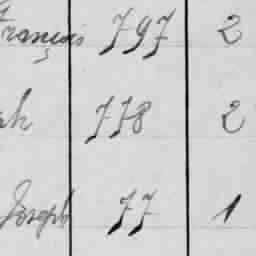 François 797 2
ph 778 2
Joseph 77 1